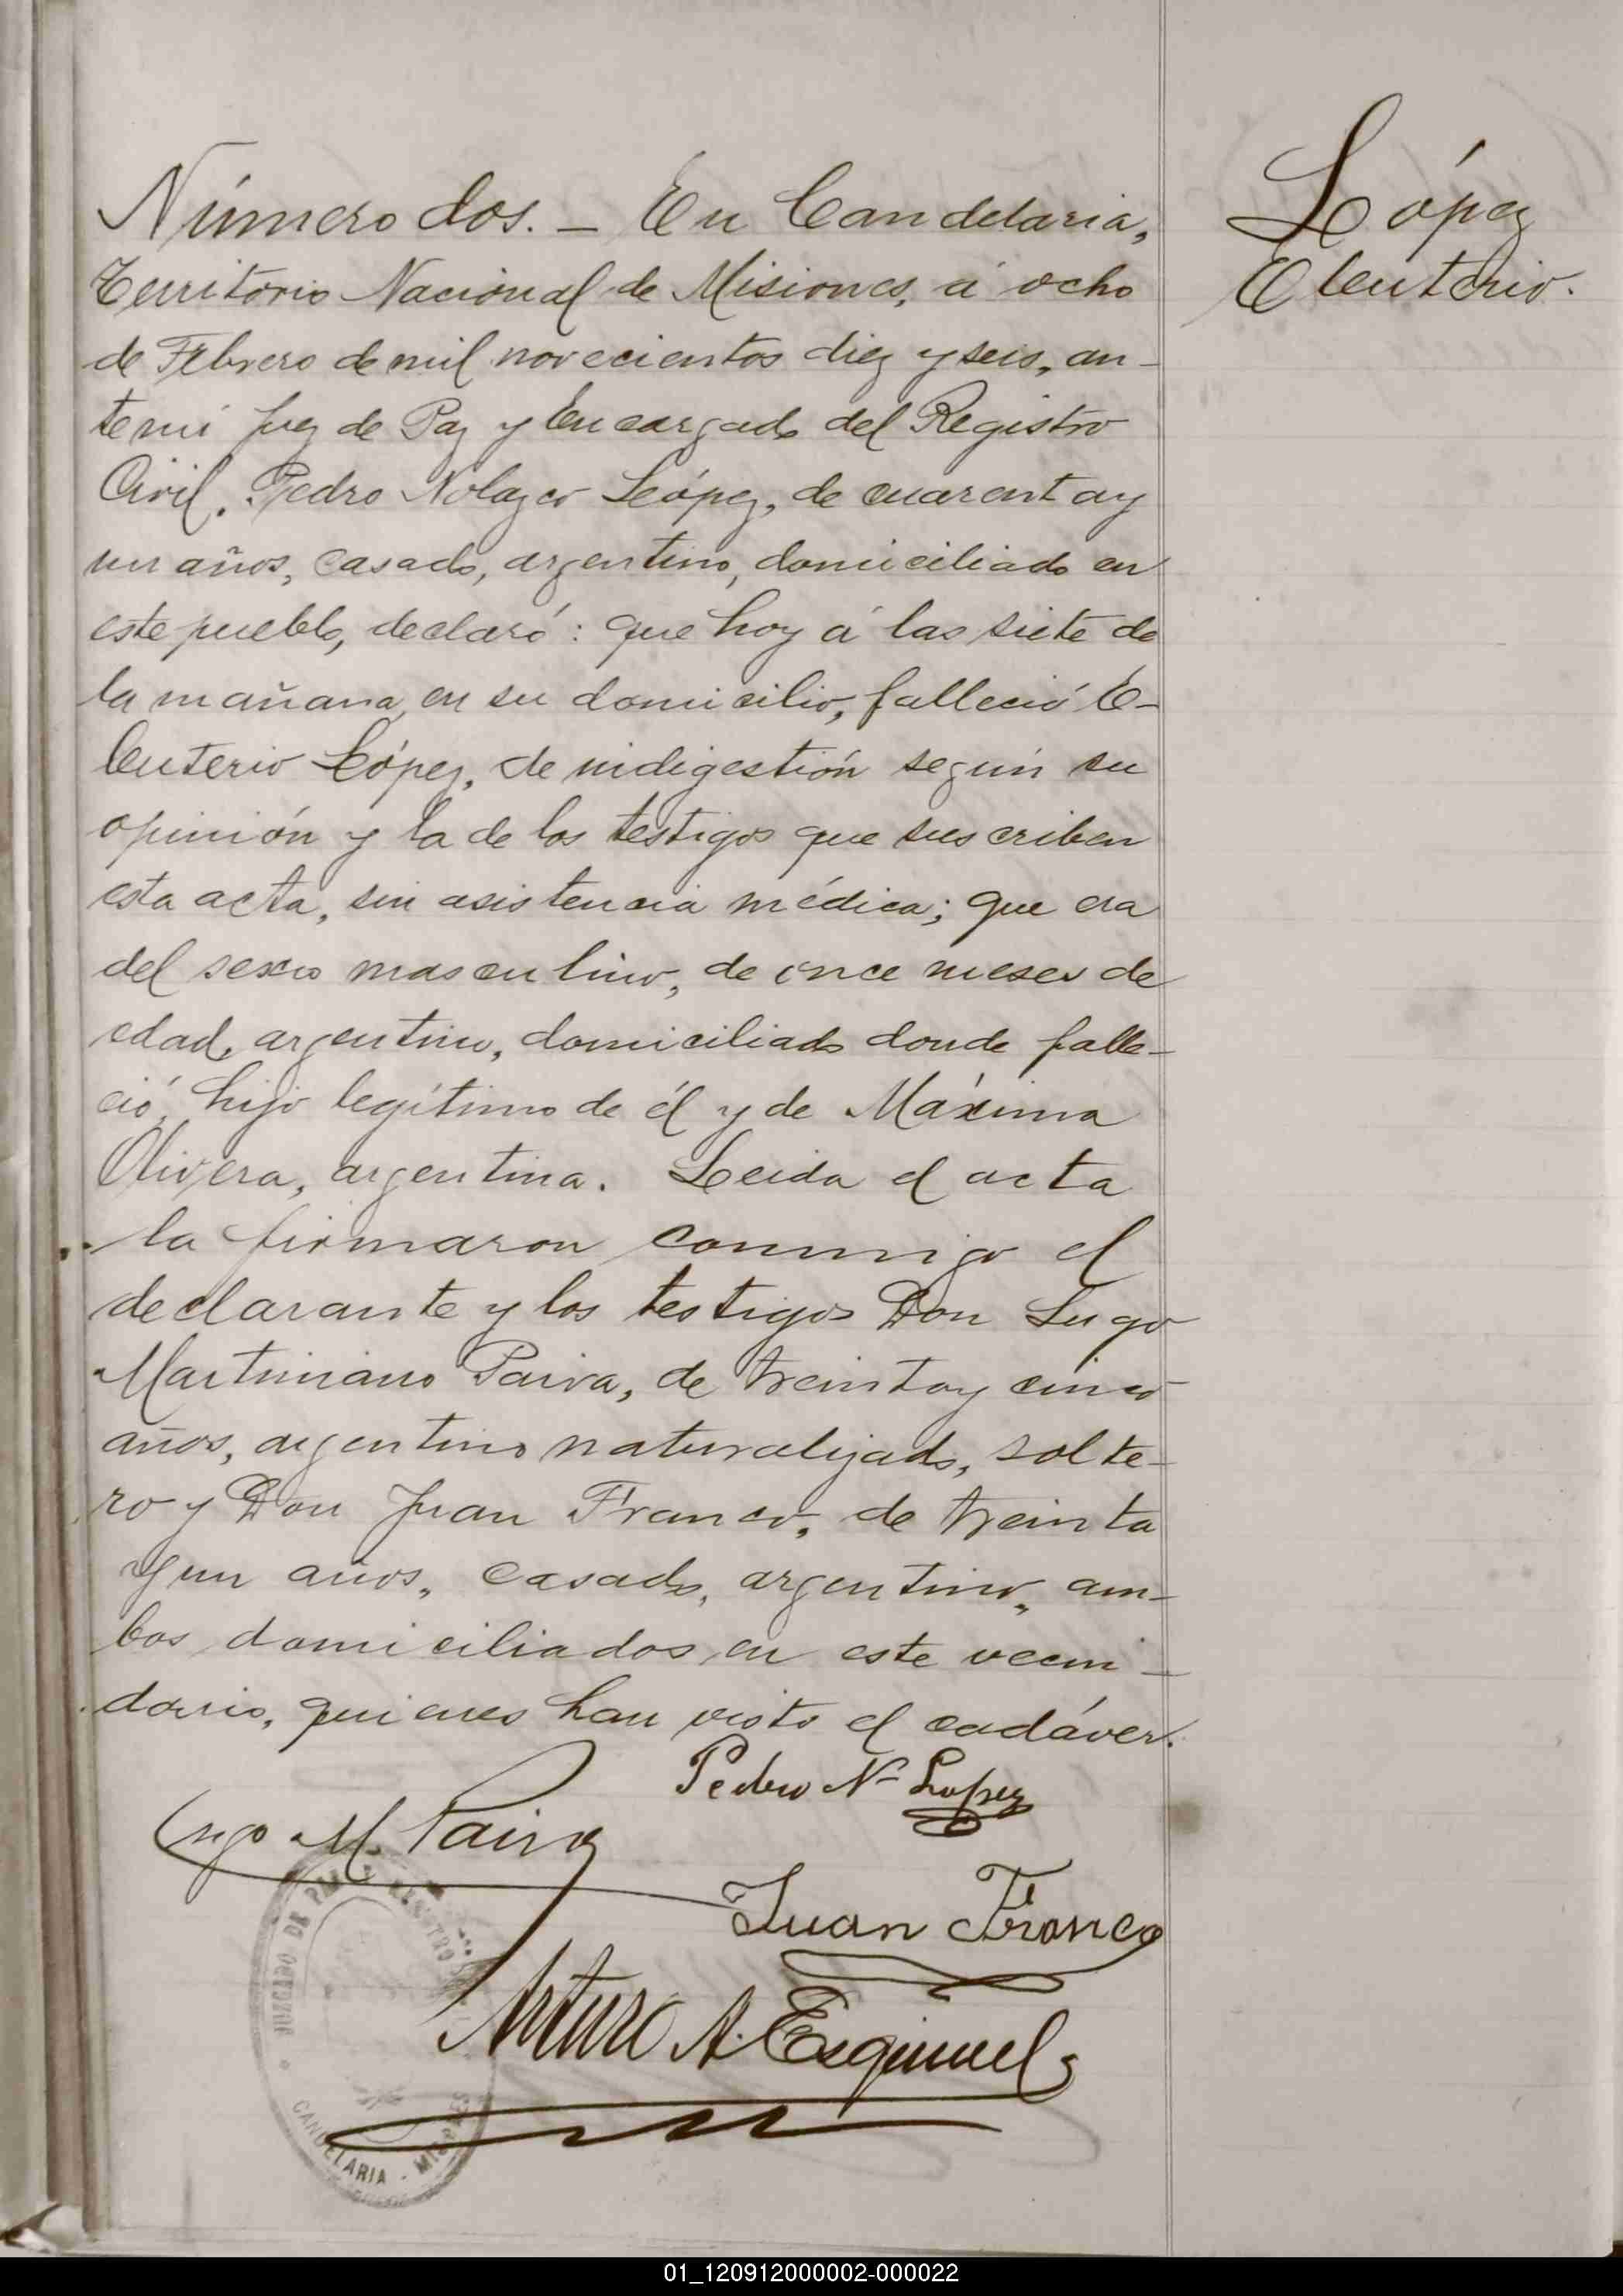 Número dos. – En Candelaria,
Territorio Nacional de Misiones, á ocho
de Febrero de mil novecientos diez y seis, an-
te mi Juez de Paz y Encargado del Registro
Civil, Pedro Nolazco López, de cuarenta y
un años, casado, argentino, domiciliado en
este pueblo, declaró: que hoy á las siete de
la mañana, en su domicilio, falleció E-
leuterio López, de indigestión según su
opinión y la de los testigos que suscriben
esta acta, sin asistencia médica; que era
del sexo masculino, de once meses de
edad, argentino, domiciliado donde falle-
ció, hijo legítimo de él y de Máxima
Olivera, argentina. Leida el acta
la firmaron conmigo el
declarante y los testigos Don Lugo
Martiniano Paiva, de treinta y cinco
años, argentino naturalizado, solte-
ro y Don Juan Franco, de treinta
y un años, casado, argentino, am-
bos domiciliados en este vecin-
dario, quienes han visto el cadáver.
López
Eleuterio.
Pedro N- Lopez
Lugo M. Paiva
Juan Franco
Arturo A. Esquivel
JUZGADO DE PAZ REGISTRO
CANDELARIA - MISIONES
01_120912000002-000022